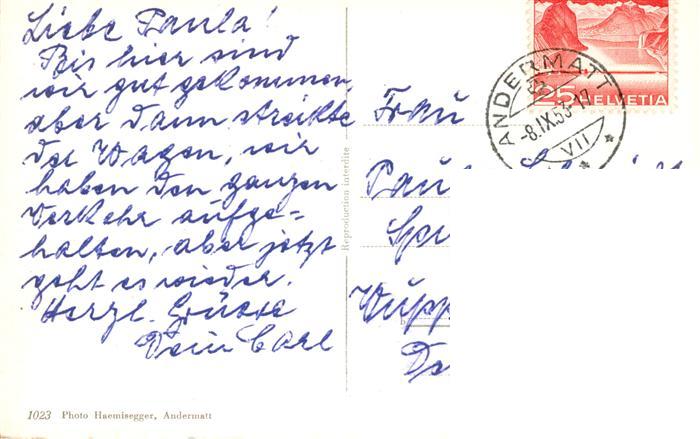 Liebe Paula!
Bis hier sind
wir gut gekommen,
aber dann streikte
der Wagen, wir
haben den ganzen
Verkehr aufge=
halten, aber jetzt
geht es wieder.
Herzl. Grüsse
Dein Carl
1023 Photo Haemisegger, Andermatt
Reproduction interdite
25 HELVETIA
ANDERMATT
-8.IX.53-17
VII
Frau